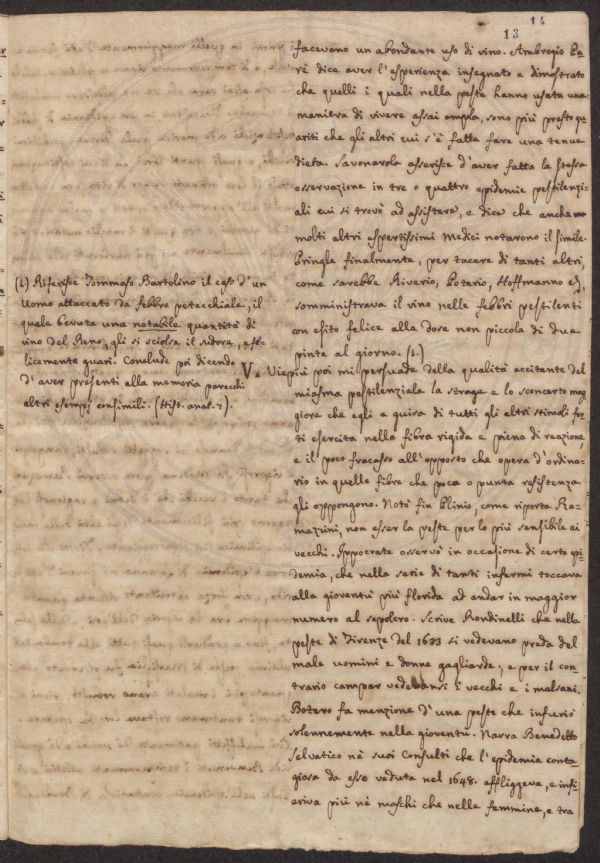 14
13
facevano un abondante uso di vino. Ambrogio Pa=
rè dice aver l'esperienza insegnato e dimostrato
che quelli i quali nella peste hanno usata una
maniera di vivere assai ampla, sono più presto gu
ariti che gli altri cui s'è fatta fare una tenue
dieta. Savonarola asserisce d'aver fatta la stessa
osservazione in tre o quattro epidemie pestilenzi=
ali cui si trovò ad assistere, e dice che anche
molti altri espertissimi Medici notarono il simile.
Pringle finalmente, per tacere di tanti altri,
come sarebbe Riverio, Poterio, Hoffmanno
somministrava il vino nelle febbri pestilenti
con esito felice alla dose non piccola di due
pinte al giorno. (1.)
(1) Riferisce Tommaso Bartolino il caso d'un
Uomo attaccato da febbre petecchiale, il
quale bevuta una notabile quantità di
vino del Reno, gli si sciolse il sudore, e fe=
licemente guarì. Conclude poi dicendo
d'aver presenti alla memoria parecchi
altri esempj consimili. (Hist. anat. 7).
V. Viepiù poi mi persuade della qualità eccitante del
miasma pestilenziale la strage e lo sconcerto mag
giore che egli a guisa di tutti gli altri stimoli for
ti esercita nella fibra rigida e piena di reazione,
e il poco fracasso all'opposto che opera d'ordina=
rio in quelle fibre che poca o punta resistenza
gli oppongono. Notò fin Plinio, come riporta Ra=
mazzini, non esser la peste per lo più sensibile ai
vecchi. Ippocrate osservò in occasione di certa epi
demia, che nella serie di tanti infermi toccava
alla gioventù più florida ad andar in maggior
numero al sepolcro. Scrive Rondinelli che nella
peste di Firenze del 1633 si vedevano preda del
male uomini e donne gagliarde, e per il con
trario campar vedevansi i vecchi e i malsani.
Botero fa menzione d'una peste che infuriò
solennemente nella gioventù. Narra Benedetto
Selvatico nè suoi Consulti che l'epidemia conta
giosa da esso veduta nel 1648. affliggeva, e infi
eriva più nè maschi che nelle femmine, e tra